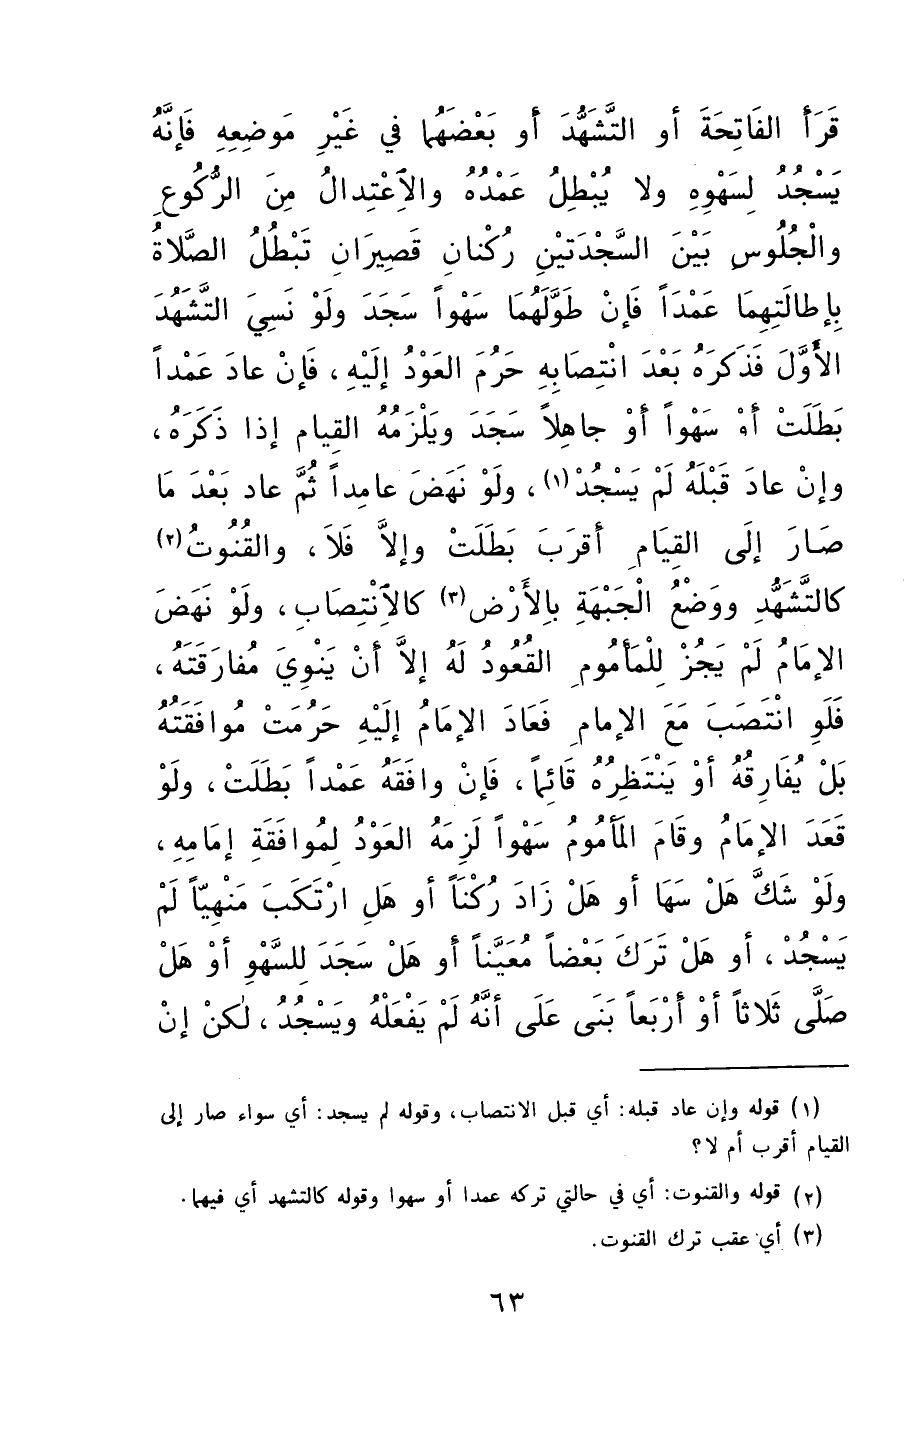 قَرَأَ الفَاتِحَةَ أو التَّشَهُّدَ أو بَعْضَهُما في غَيْرِ مَوضِعِهِ فَإنَّهُ
يَسْجُدُ لِسَهْوِهِ ولا يُبْطِلُ عَمْدُهُ والاَعْتِدالُ مِنَ الرُّكُوعِ
والْجُلُوسِ بَيْنَ السَّجْدَتَيْنِ رُكْنانِ قَصِيرَانِ تَبْطُلُ الصَّلاةُ
بِإطالَتِهِمَا عَمْدَاً فَإنْ طَوَّلَهُمَا سَهْواً سَجَدَ ولَوْ نَسِيَ التَّشَهُدَ
الأَوَّلَ فَذَكَرَهُ بَعْدَ انْتِصَابِهِ حَرُمَ العَوْدُ إلَيْهِ، فَإنْ عادَ عَمْداً
بَطَلَتْ أوْ سَهْواً أَوْ جاهِلاً سَجَدَ ويَلْزَمُهُ القِيام إذا ذَكَرَه،
وإنْ عادَ قَبْلَهُ لَمْ يَسْجُدْ(١)، ولَوْ نَهَضَ عامِداً ثُمَّ عاد بَعْدَ مَا
صَارَ إلَى القِيَامِ أَقرَبَ بَطَلَتْ وإلاَّ فَلاَ، والقُنُوتُ(٢)
كالتَّشَهُّدِ ووَضْعُ الْجَبْهَةِ بِالأَرْضِ(٣) كالاَنْتِصَابِ، ولَوْ نَهَضَ
الإمَامُ لَمْ يَجُزْ لِلْمَأمُومِ القُعُودُ لَهُ إلاَّ أَنْ يَنْوِيَ مُفارَقَتَهُ،
فَلَوِ انْتَصَبَ مَعَ الإمامِ فَعَادَ الإمَامُ إلَيْهِ حَرُمَتْ مُوافَقَتُهُ
بَلْ يُفَارِقُهُ أوْ يَنْتَظِرُهُ قَائِماً، فَإنْ وافَقَهُ عَمْداً بَطَلَتْ، ولَوْ
قَعَدَ الإمَامُ وقَامَ المَأمُومُ سَهْواً لَزِمَهُ العَوْدُ لِمُوافَقَةِ إمَامِهِ،
ولَوْ شَكَّ هَلْ سَهَا أو هَلْ زَادَ رُكْنَاً أو هَلِ ارْتَكَبَ مَنْهِيّاً لَمْ
يَسْجُدْ، أو هَلْ تَرَكَ بَعْضاً مُعَيَّناً أو هَلْ سَجَدَ لِلسَّهْوِ أوْ هَلْ
صَلَّى ثَلاثاً أوْ أرْبَعاً بَنَى عَلَى أنَّهُ لَمْ يَفْعَلْهُ ويَسْجُدُ، لٰكنْ إنْ
(١) قوله وإن عاد قبله: أي قبل الانتصاب، وقوله لم يسجد: أي سواء صار إلى
القيام أقرب أم لا؟
(٢) قوله والقنوت: أي في حالتي تركه عمدا أو سهوا وقوله كالتشهد أي فيهما.
(٣) أي عقب ترك القنوت.
٦٣